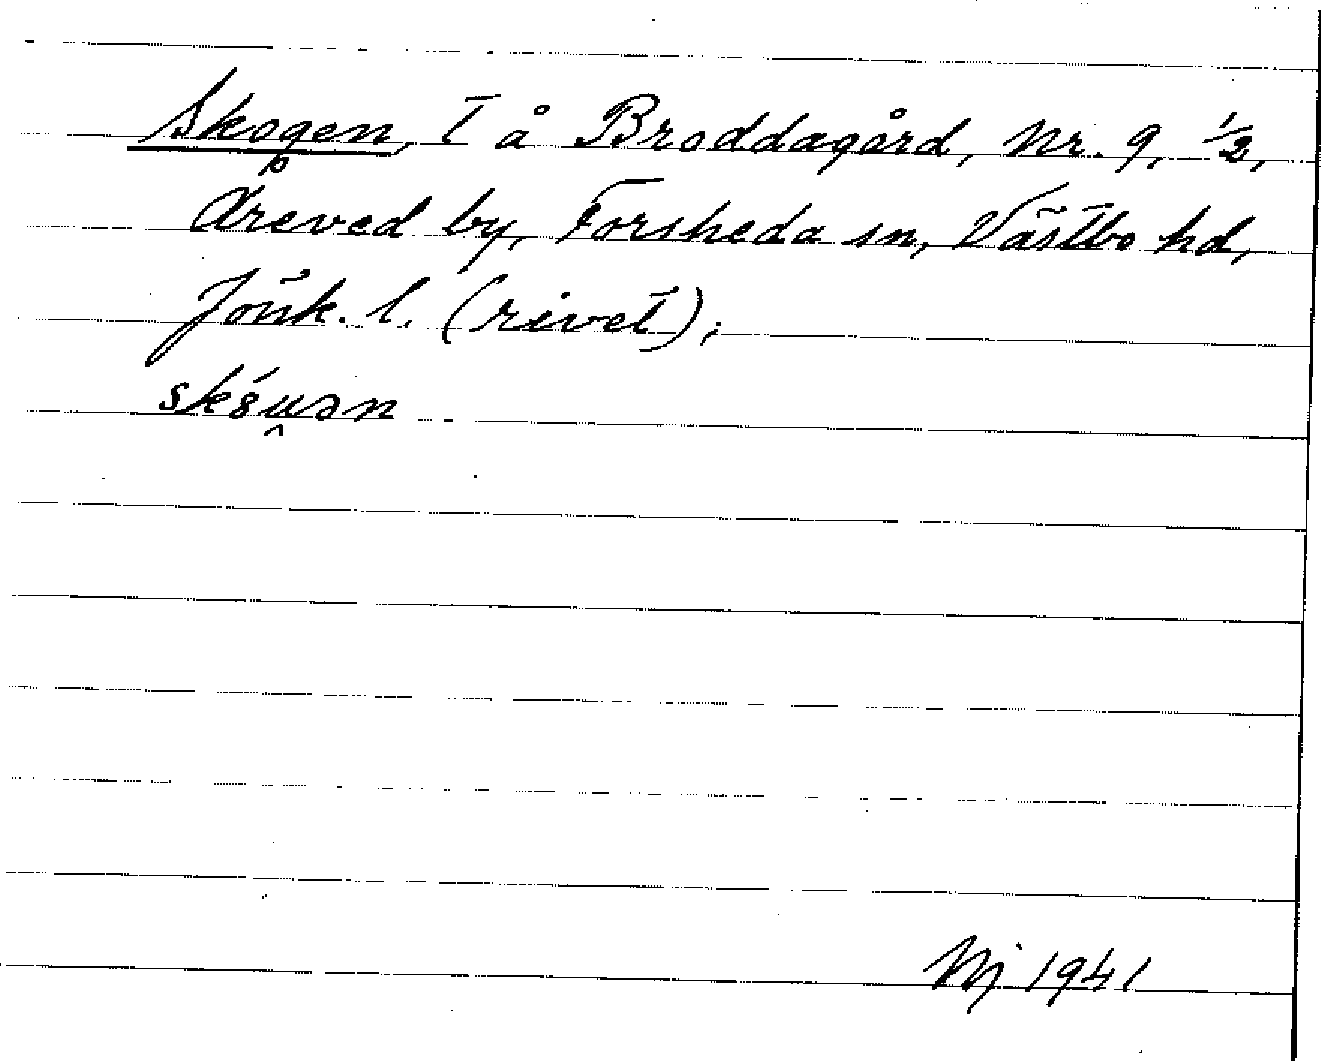 Skogen, t å Broddagård, Nr. 9, 1/2,
Åreved by, Forsheda sn, Västbo hd,
Jönk. l. (rivet),
Nj 1941